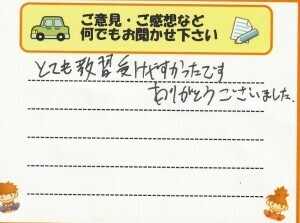 ご意見・ご感想など
何でもお聞かせ下さい
とても教習受けやすかったです
ありがとうございました。